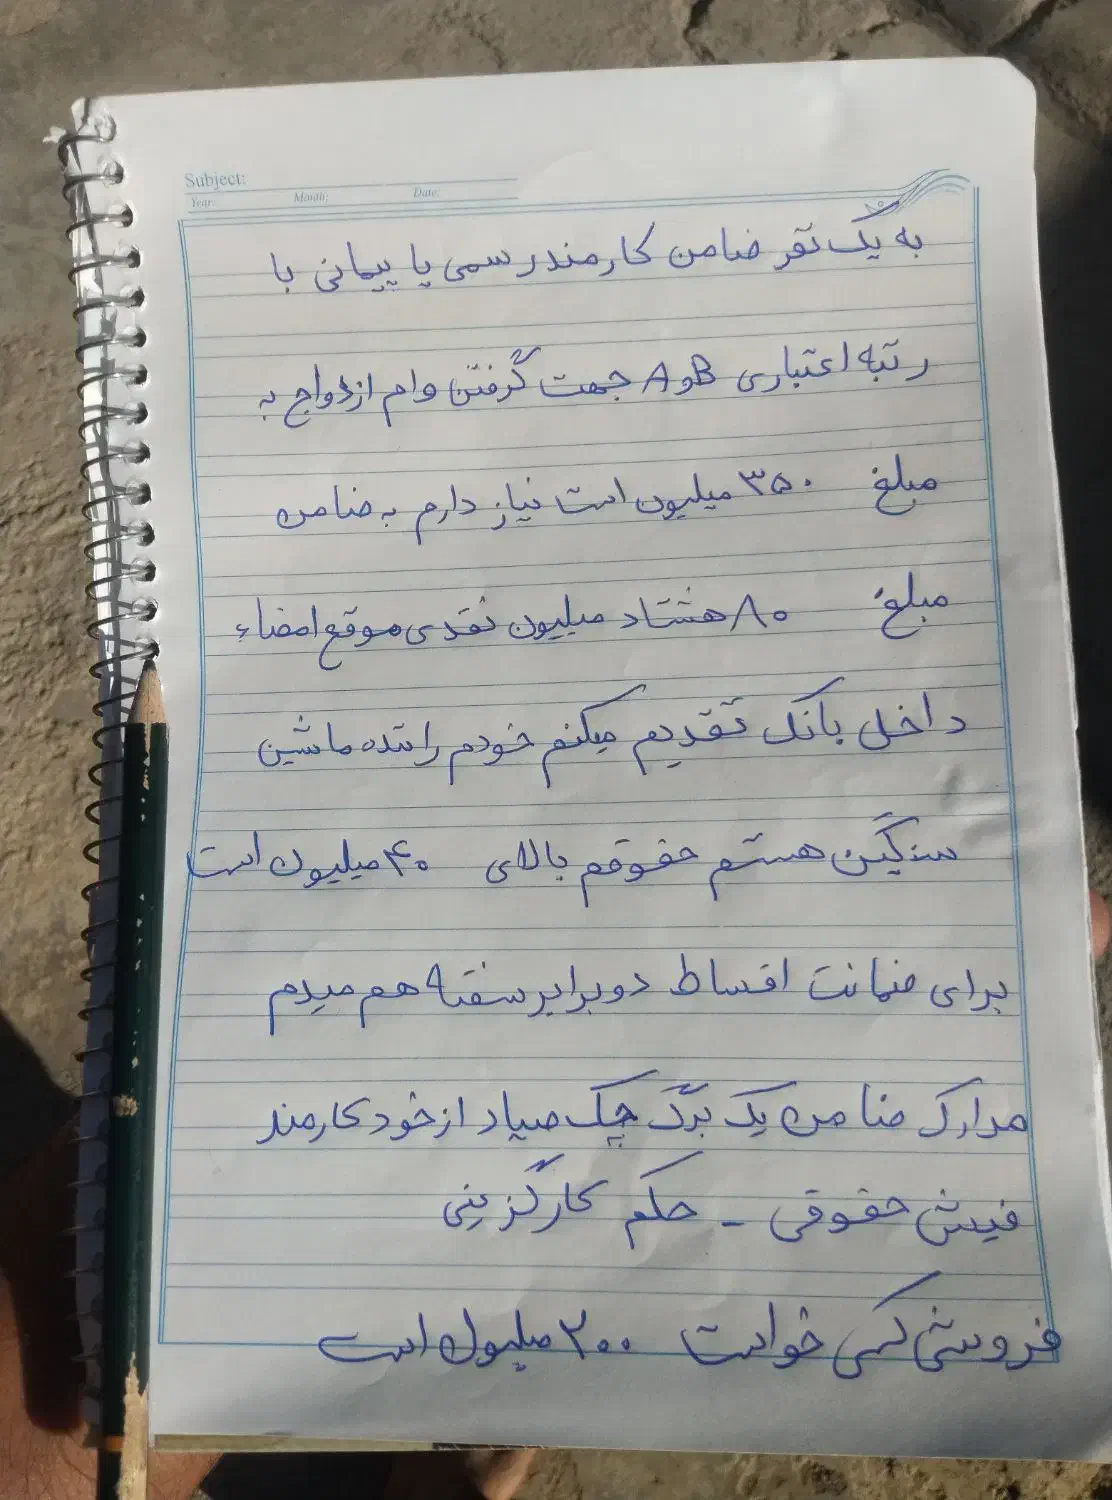 Subject:
Year: Month: Date:
به یک نفر ضامن کارمند رسمی یا پیمانی با
رتبه اعتباری B و A جهت گرفتن وام ازدواج به
مبلغ ۳۵۰ میلیون است نیاز دارم به ضامن
مبلغ ۸۰ هشتاد میلیون نقدی موقع امضاء
داخل بانک تقدیم میکنم خودم راننده ماشین
سنگین هستم حقوقم بالای ۴۰ میلیون است
برای ضمانت اقساط دو برابر سفته هم میدم
مدارک ضامن یک برگ چک صیاد از خود کارمند
فیش حقوقی - حکم کارگزینی
فروشی کسی خواست ۲۰۰ میلیون است